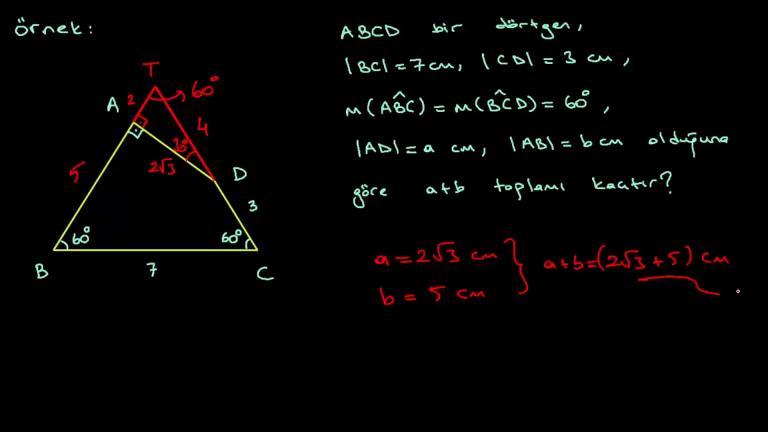 örnek:
ABCD bir dörtgen,
|BC| = 7 cm, |CD| = 3 cm,
m(ABC) = m(BCD) = 60°,
|AD| = a cm, |AB| = b cm olduğuna
göre a+b toplamı kaçtır?
T
60°
A
2
4
30°
2√3
D
5
3
60°
60°
B
7
C
a = 2√3 cm
b = 5 cm
a+b = (2√3 + 5) cm